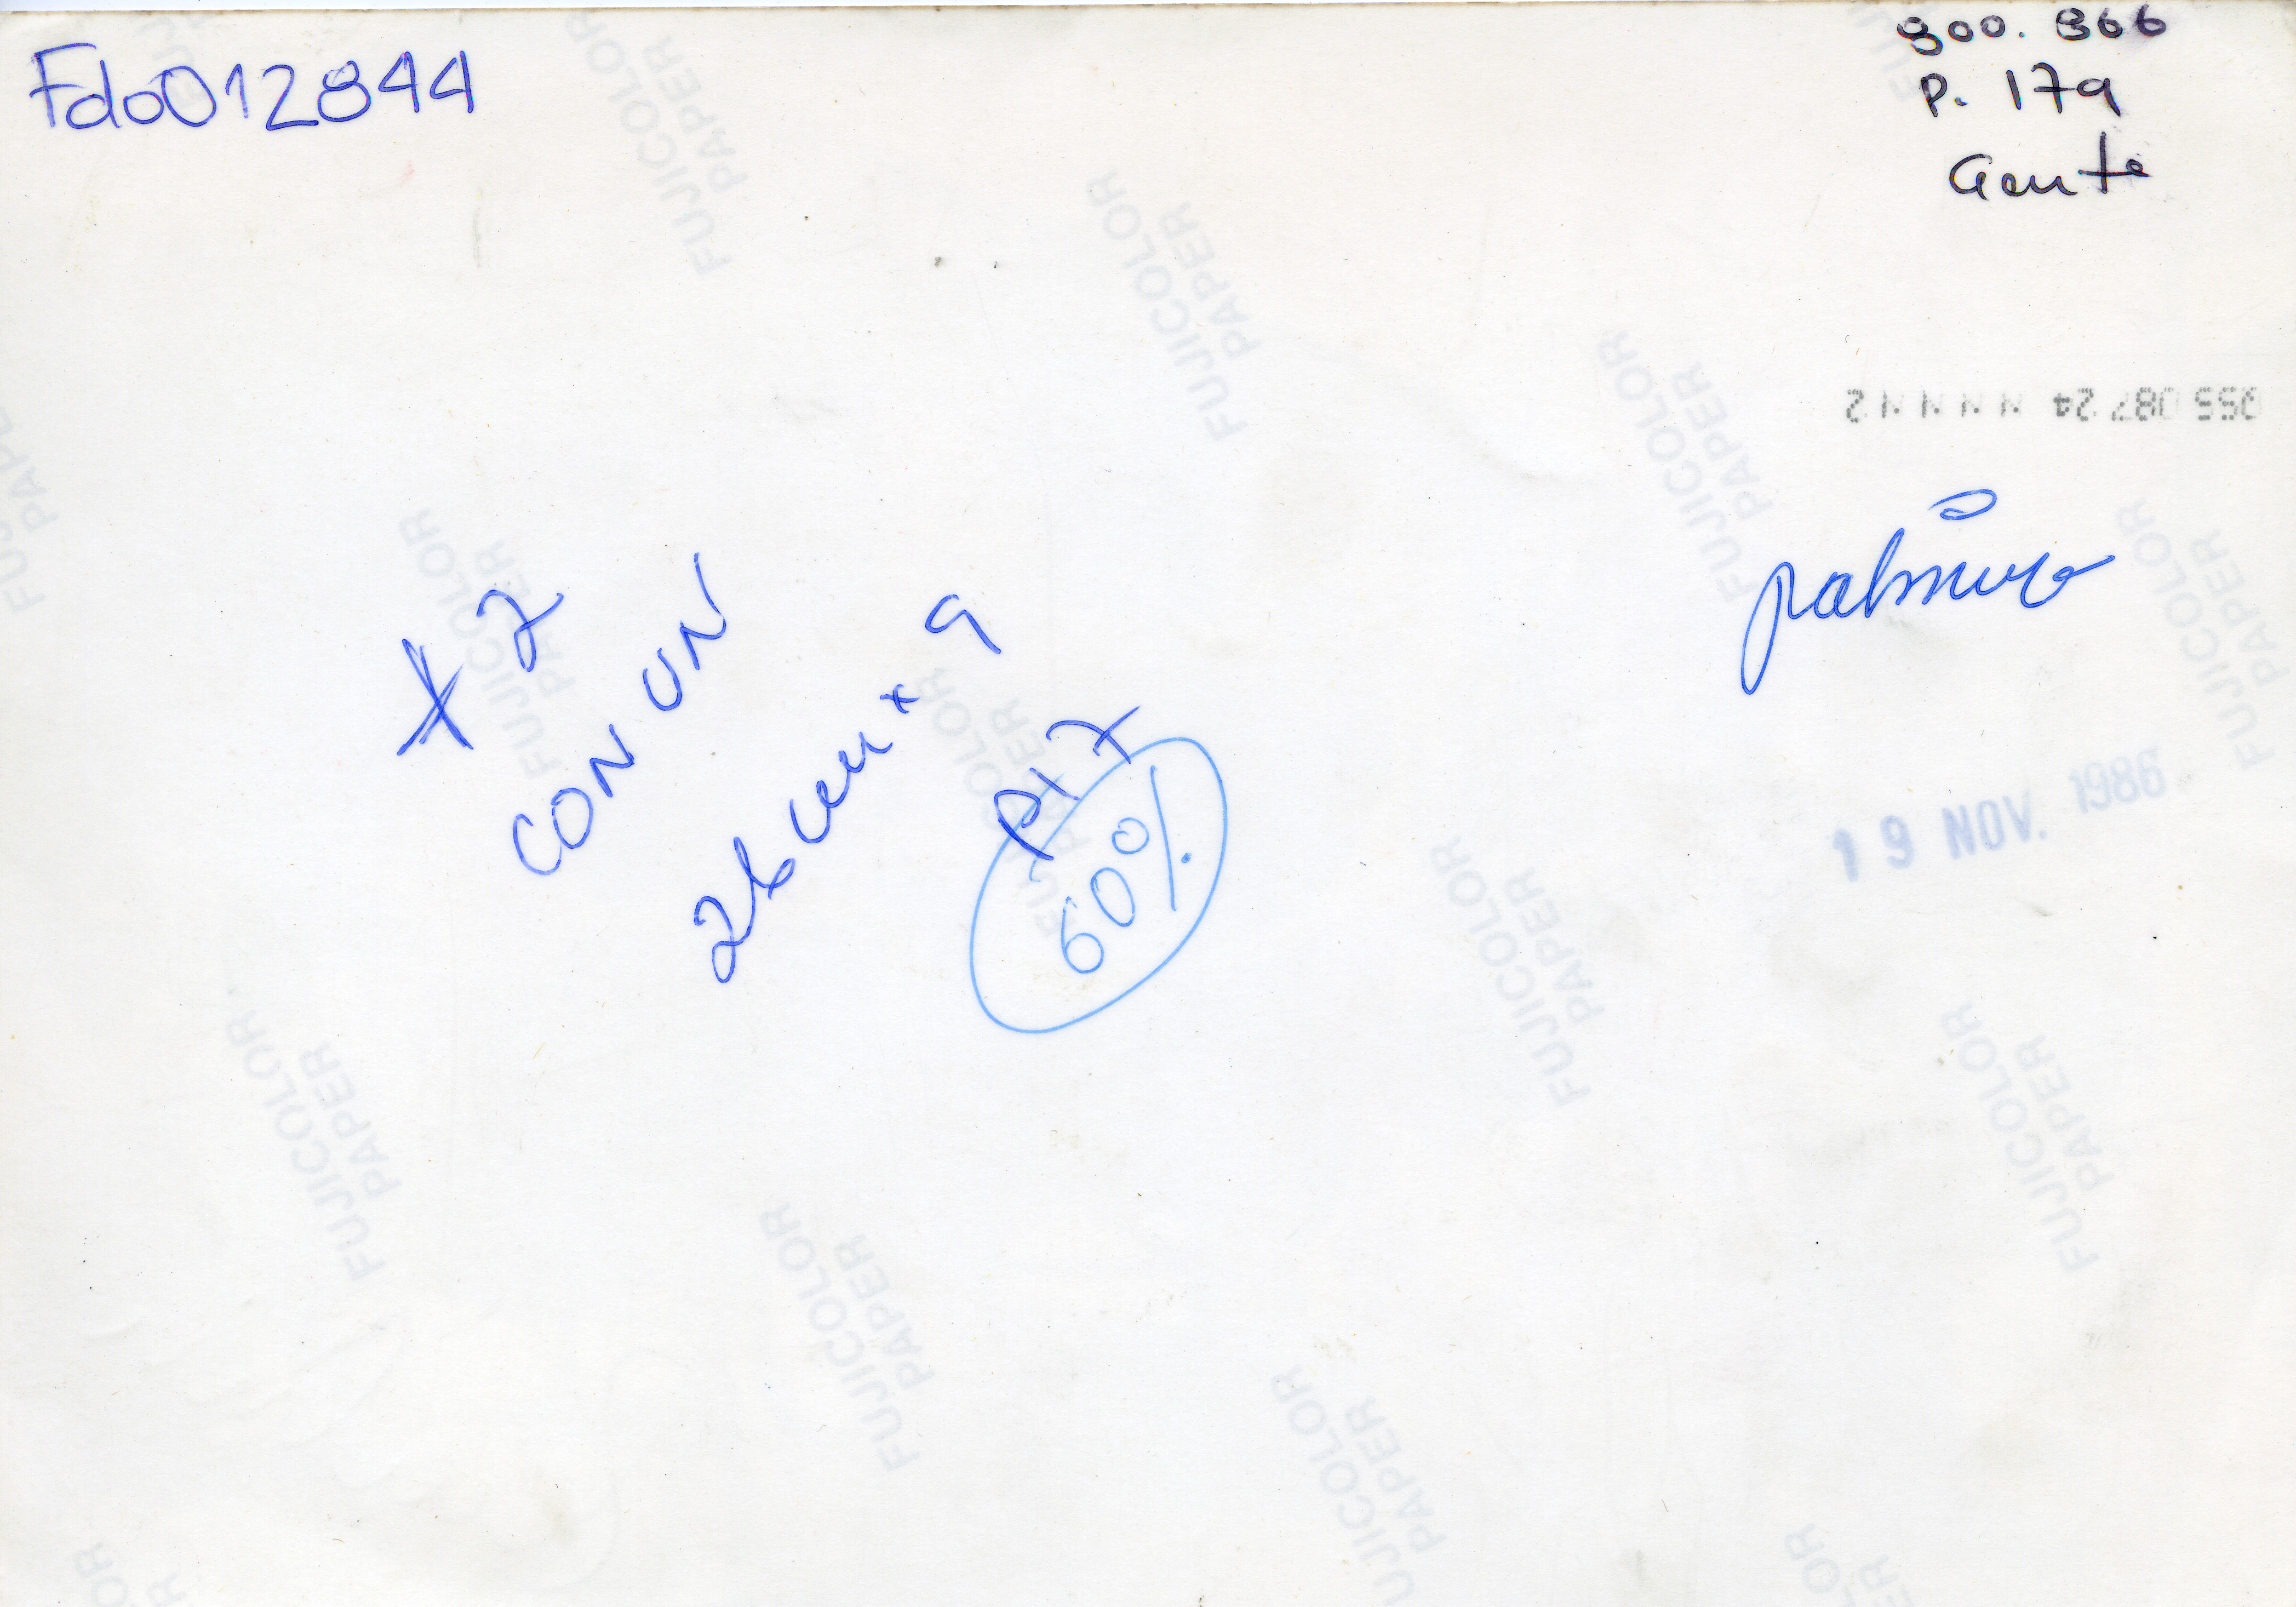 Fdo012844
800. 866
P. 179
Gente
055 087 24 N N N N 2
* 2
CON UN
26 cm x 9
P17
60%
19 NOV. 1986
FUJICOLOR
PAPER
FUJICOLOR
PAPER
FUJICOLOR
PAPER
FUJICOLOR
PAPER
FUJICOLOR
PAPER
FUJICOLOR
PAPER
FUJICOLOR
PAPER
FUJICOLOR
PAPER
FUJICOLOR
PAPER
FUJICOLOR
PAPER